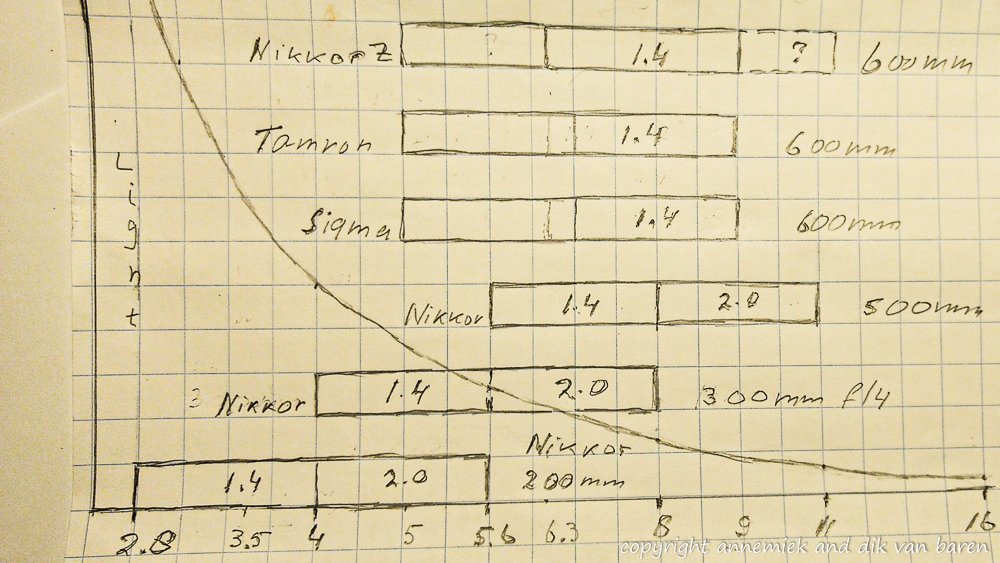 Nikkor Z ? 1.4 ? 600mm
Tamron 1.4 600mm
Light
Sigma 1.4 600mm
Nikkor 1.4 2.0 500mm
3 Nikkor 1.4 2.0 300mm f/4
Nikkor
1.4 2.0 200mm
2.8 3.5 4 5 5.6 6.3 8 9 11 16
copyright annemiek and dik van baren